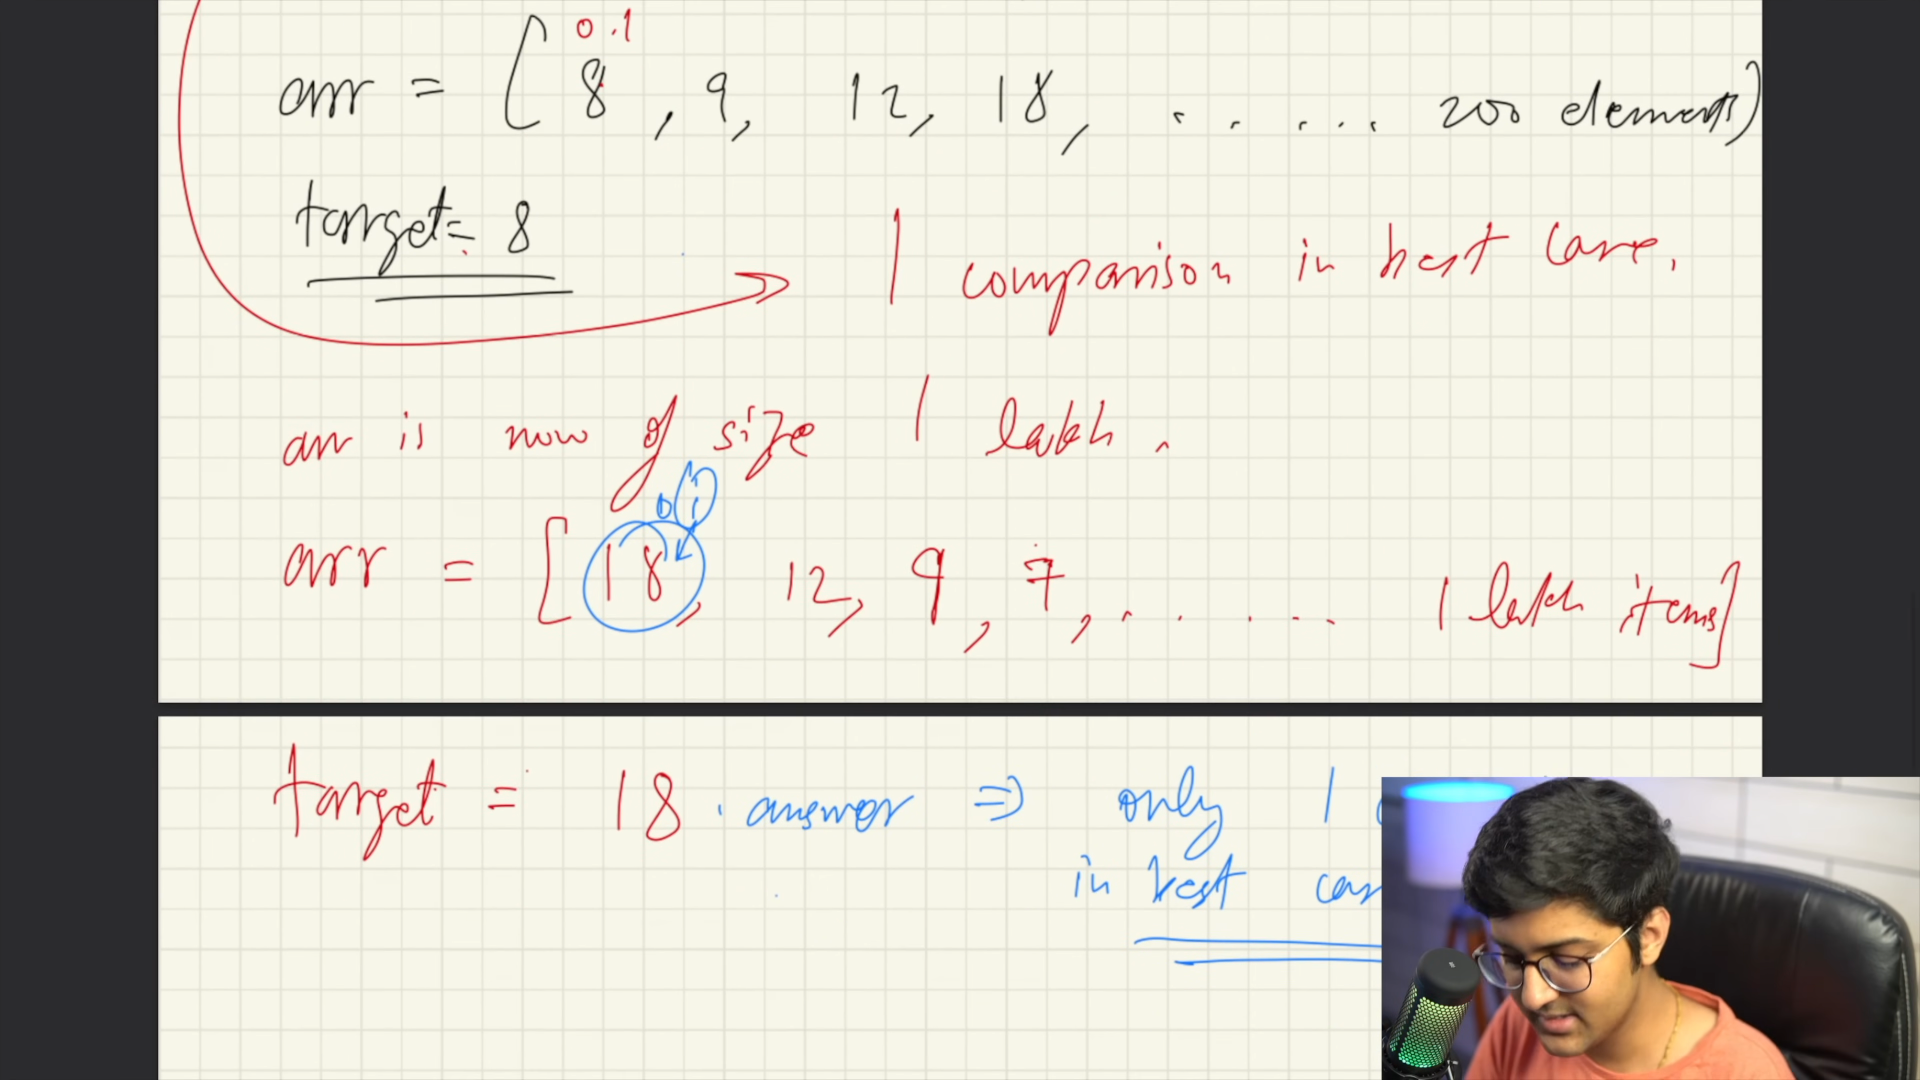 0.1
arr = [8, 9, 12, 18, ...... 200 elements]
target = 8
1 comparison in best case.
arr is now of size 1 lakh.
0 1
arr = [18, 12, 9, 7, ...... 1 lakh items]
target = 18. answer => only 1
in best